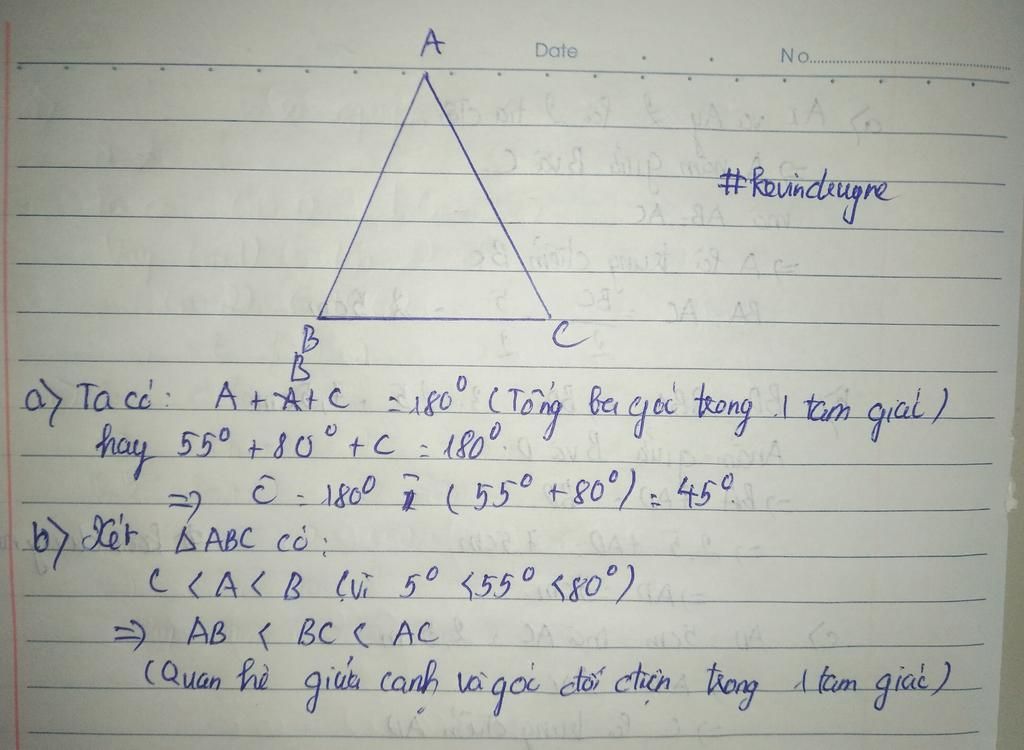 A
Date
No.
#Kevindeugne
B
C
B
a) Ta có: A + A + C = 180° (Tổng ba góc trong 1 tam giác)
hay 55° + 80° + C = 180°.
=> C = 180° - (55° + 80°) = 45°.
b) Xét ΔABC có:
C < A < B (vì 5° < 55° < 80°)
=> AB < BC < AC
(Quan hệ giữa cạnh và góc đối diện trong 1 tam giác)